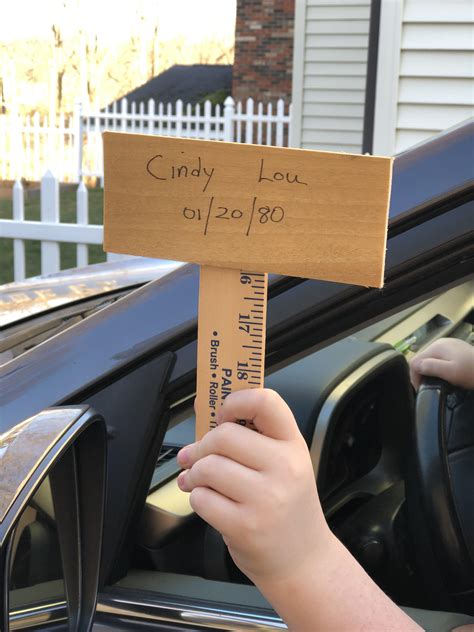 Cindy Lou
01/20/80
16
17
18
PAIN
• Brush • Roller •